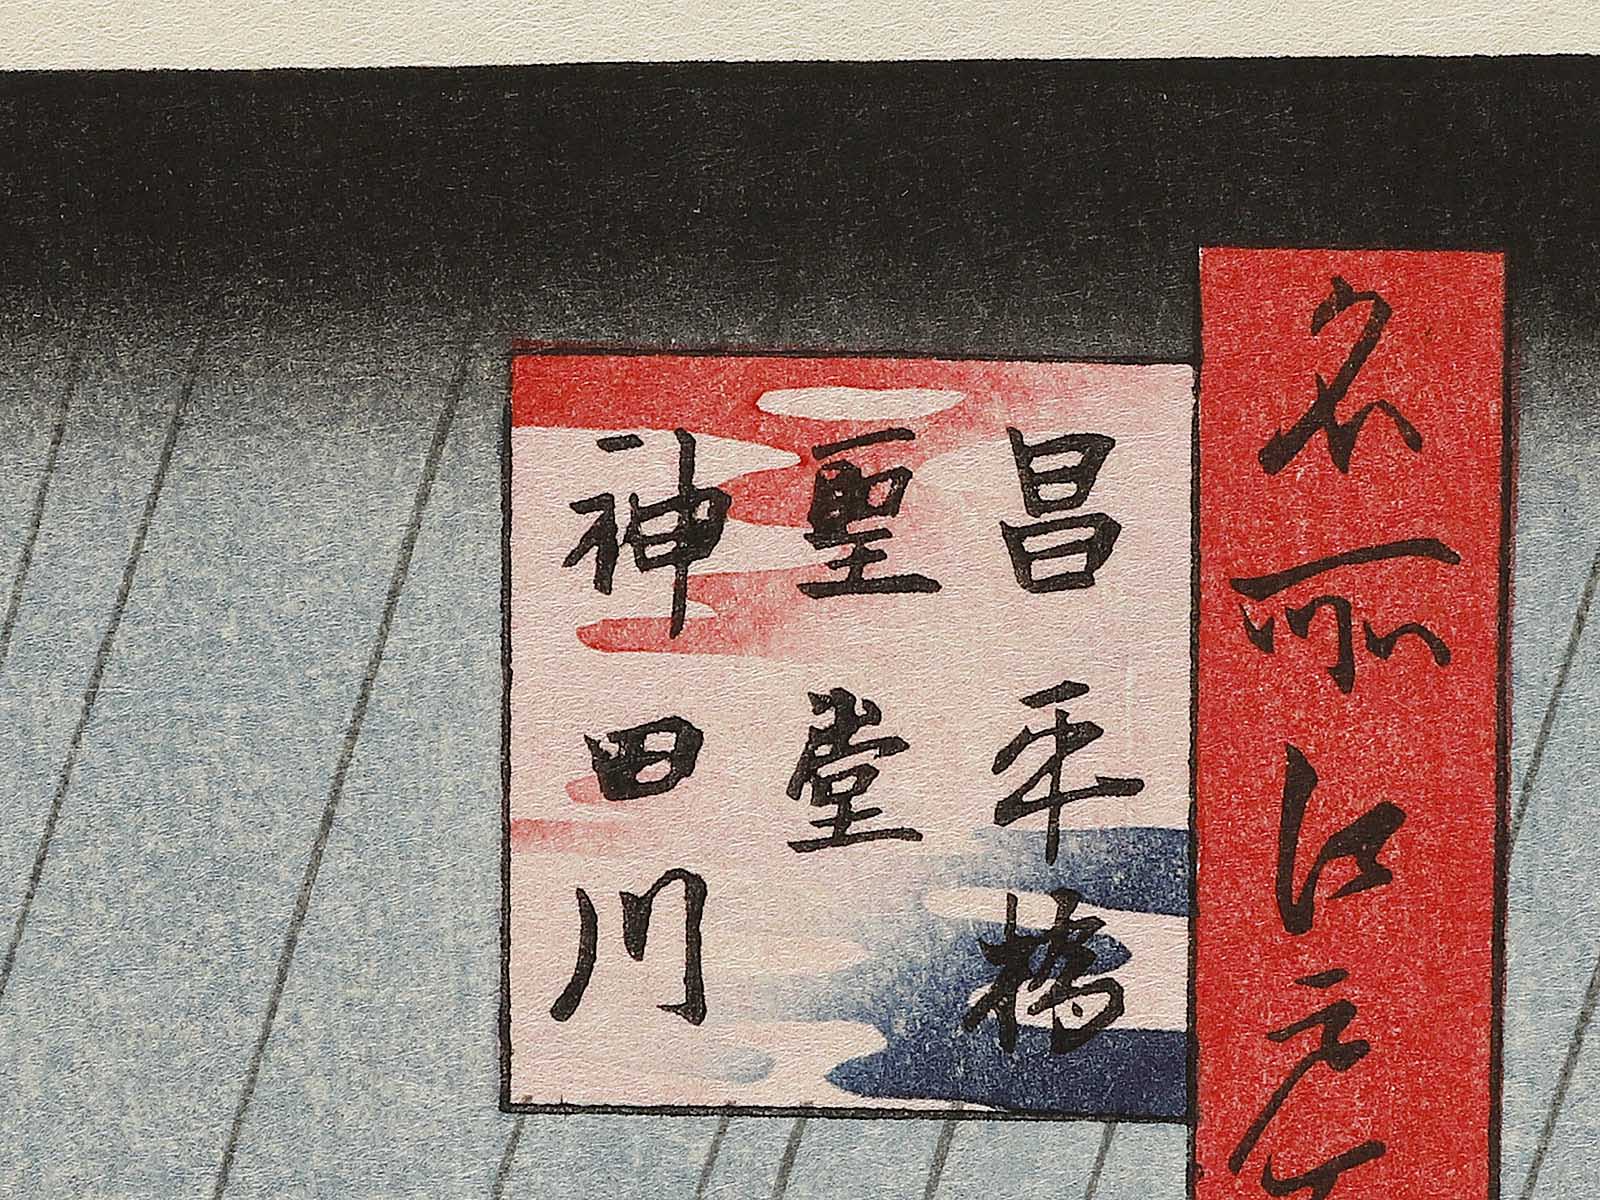 名所江戸百
昌平橋
聖堂
神田川